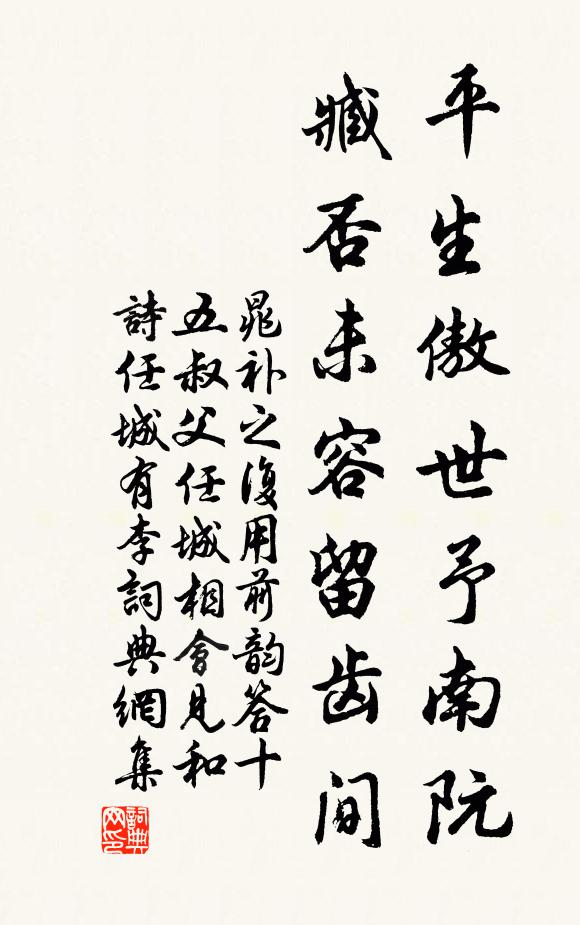 平生傲世予南阮
臧否未容留齿间
晁补之復用前韵答十
五叔父任城相會見和
詩任城有李詞典網集
詞典网印